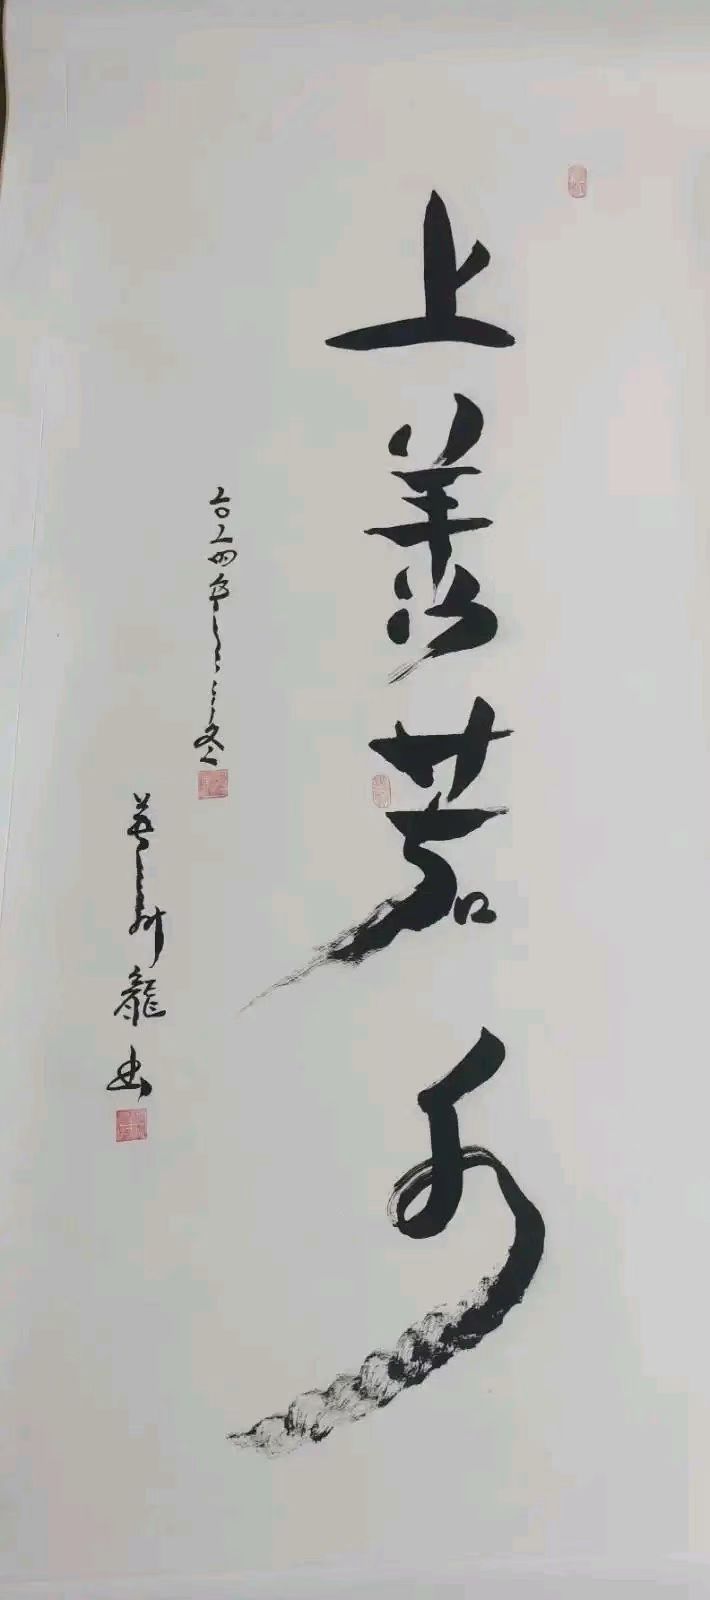 上善若水
二〇二四年冬
龍书